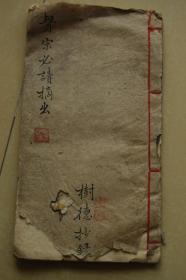 宗必讀摘出
樹德抄錄